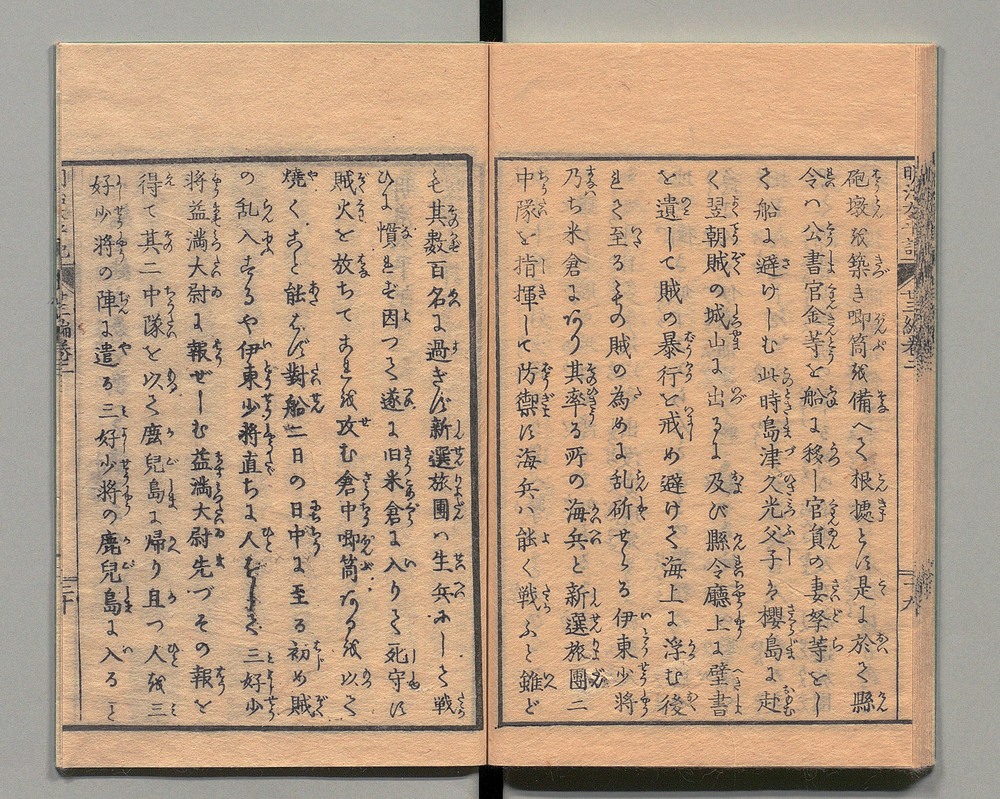 明治太平記 廿三編巻二 二十九
砲墩を築き喞筒を備へて根據とす是に於て縣
令ハ公書官金等を船に移し官員の妻孥等をし
て船に避けしむ此時島津久光父子も櫻島に赴
く翌朝賊の城山に出るに及び縣令廳上に壁書
を遺して賊の暴行を戒め避けて海上に浮む後
れて至るもの賊の為めに乱斫せらる伊東少将
乃ち米倉にあり其率る所の海兵と新選旅團二
中隊を指揮して防禦す海兵ハ能く戦ふと雖ど
も其数百名に過ぎず新選旅團ハ生兵にして戦
ひに慣れず因つて遂に旧米倉に入りて死守す
賊火を放ちてこれを攻む倉中喞筒あるを以て
焼くこと能はず對船二日の日中に至る初め賊
の乱入するや伊東少将直ちに人をして三好少
将益満大尉に報ぜしむ益満大尉先づその報を
得て其二中隊を以て鹿兒島に帰り且つ人を三
好少将の陣に遣る三好少将の鹿兒島に入ると
廿三編巻二 三十